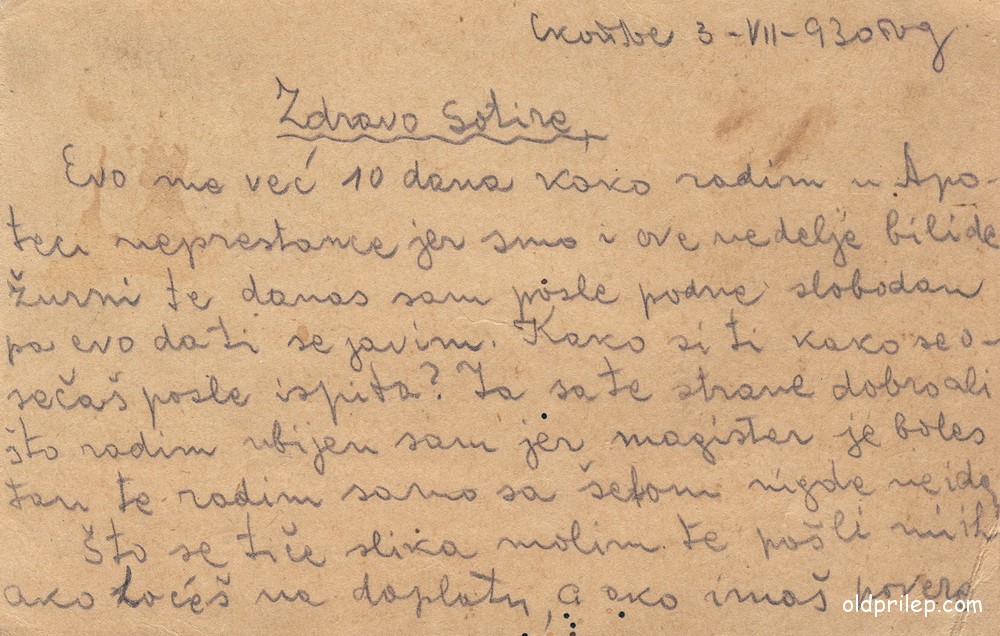 Скопље 3-VII-930 год
Zdravo Sotire,
Evo me već 10 dana kako radim u Apo-
teci neprestance jer smo i ove nedelje bili de
žurni te danas sam posle podne slobodan
pa evo da ti se javim. Kako si ti kako se o-
sečaš posle ispita? Ja sa te strane dobro ali
što radim ubijen sam jer magister je boles
tan te radim samo sa šefom nigde ne ide
Što se tiče slika molim te pošli mi ih
ako hoćeš na doplatu, a ako imaš povere
oldprilep.com